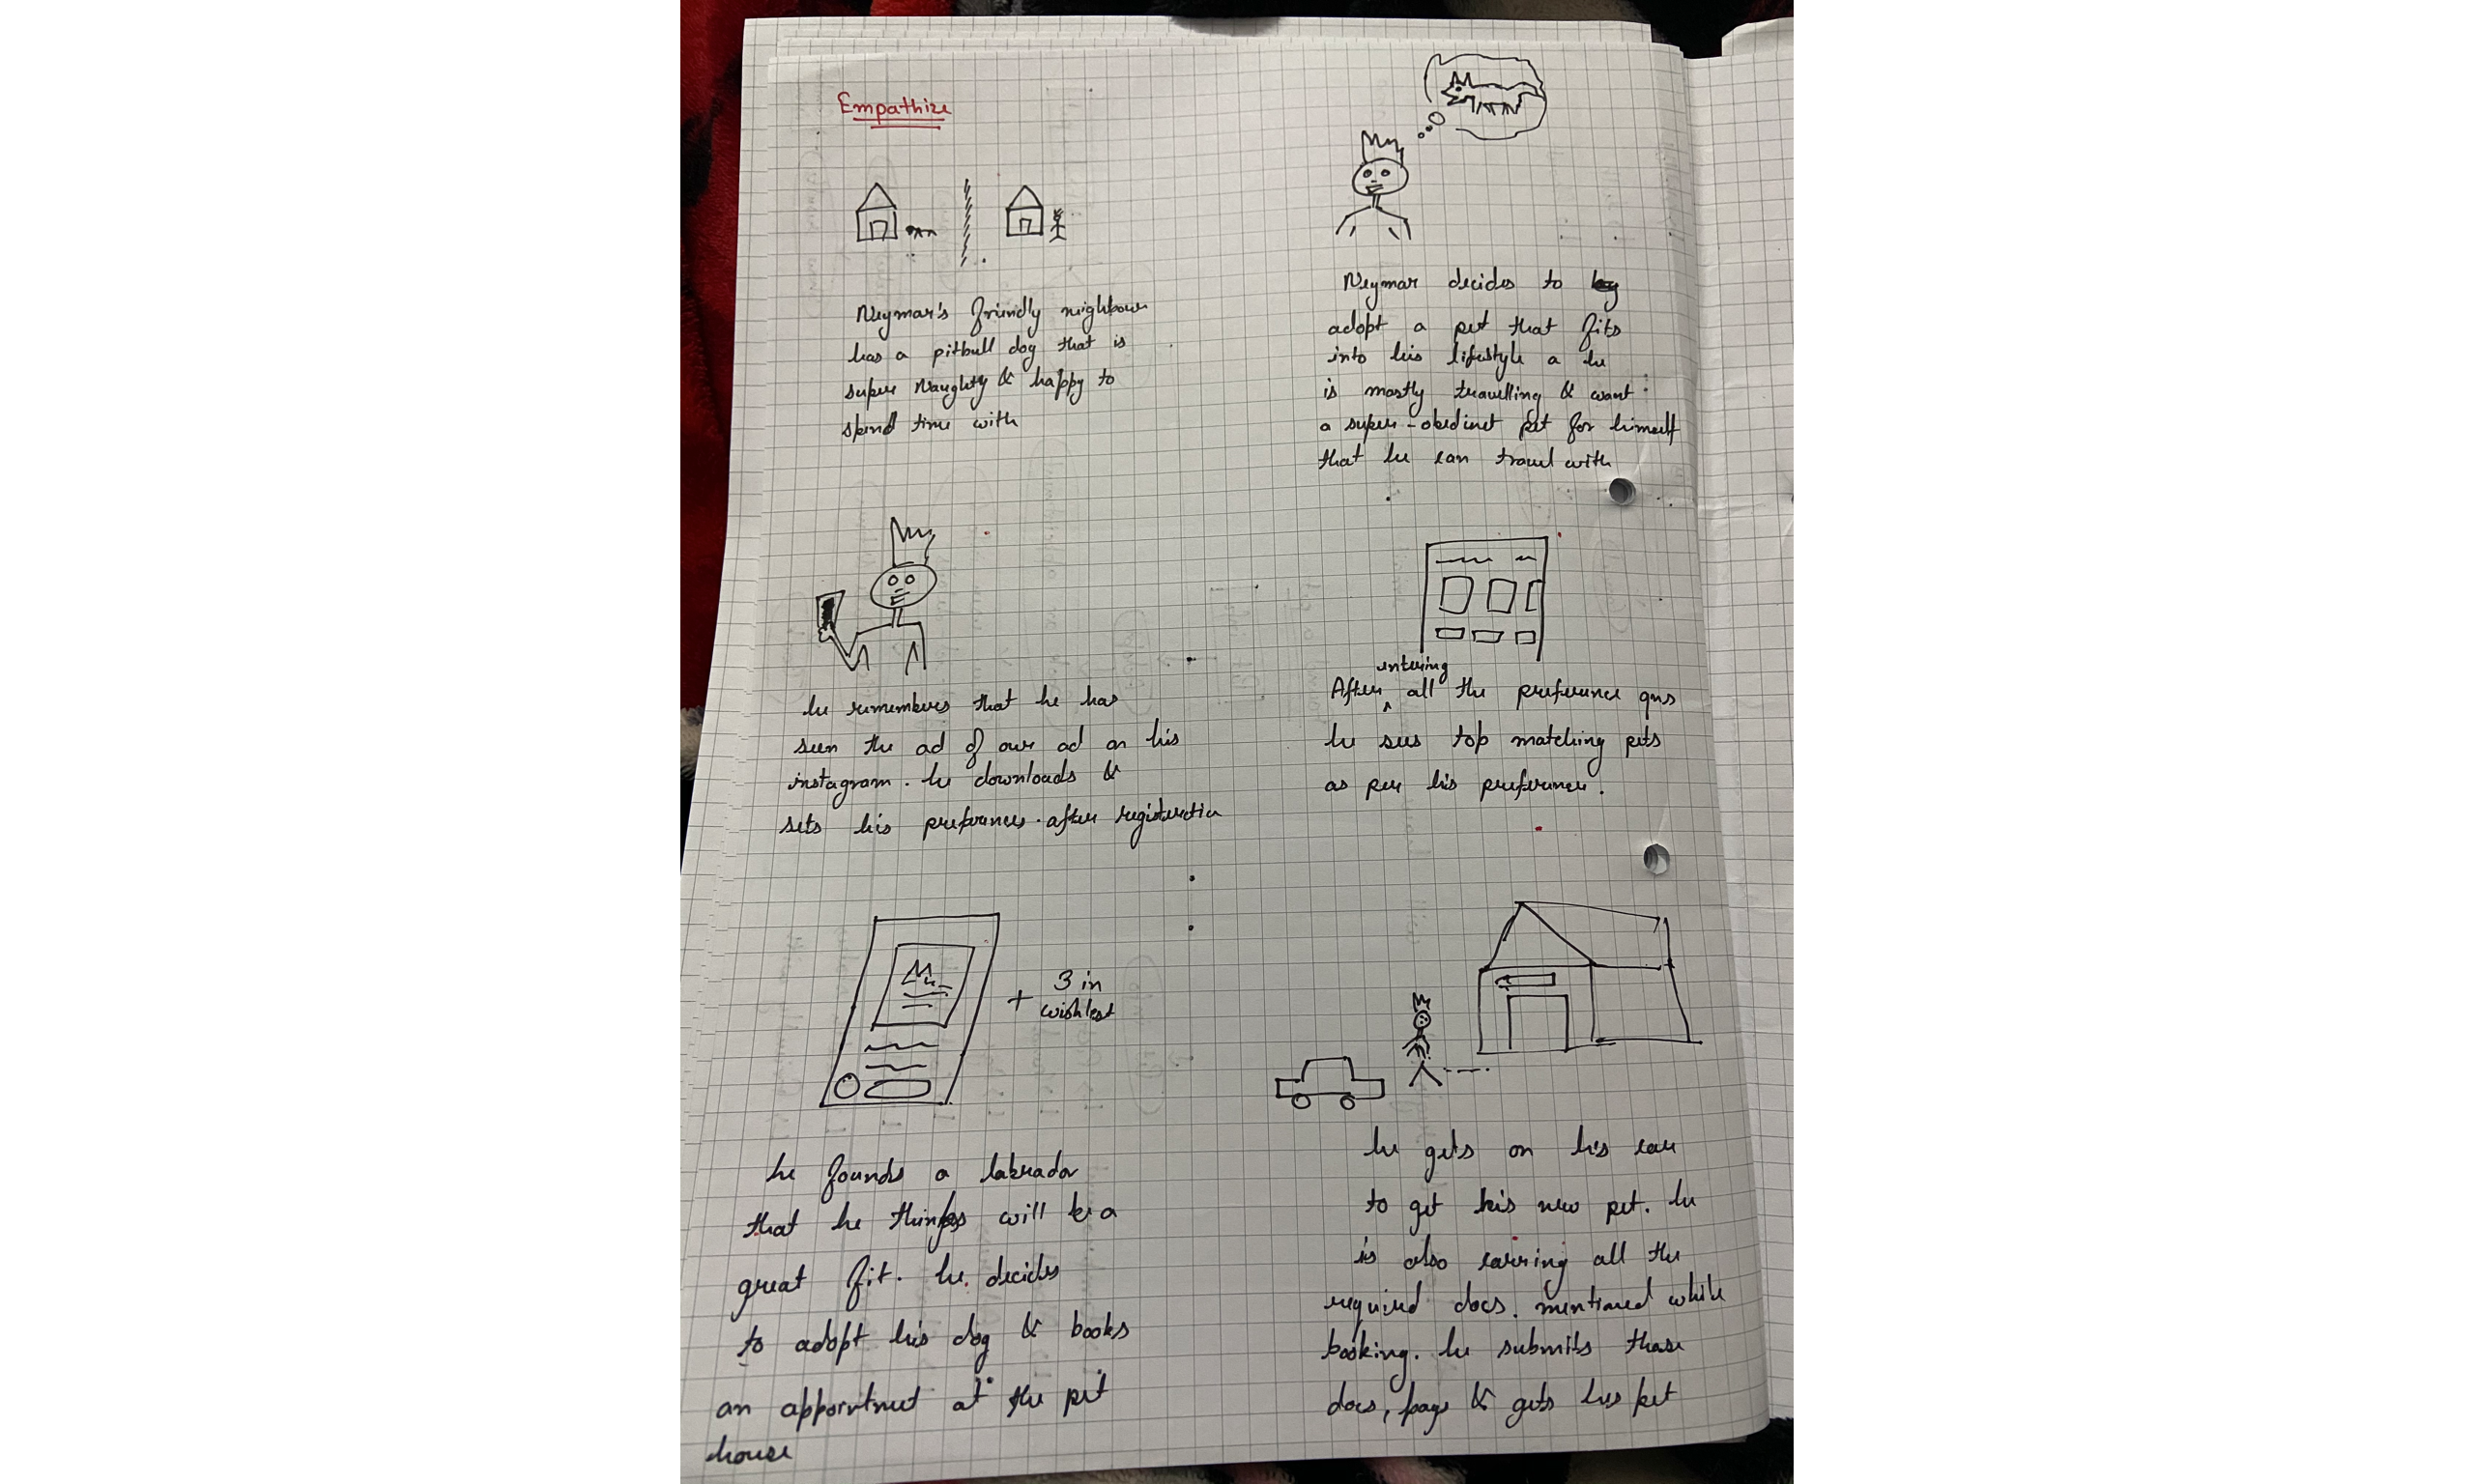 Empathize
Neymar's friendly neighbour
has a pitbull dog that is
super Naughty & happy to
spend time with
Neymar decides to
adopt a pet that fits
into his lifestyle a he
is mostly travelling & want
a super-obedinet pet for himself
that he can travel with
he remembers that he has
seen the ad of our ad on his
instagram. he downloads &
sets his prefrences. after registeration
entering
After all the preference qns
he sees top matching pets
as per his preference.
+ 3 in
wishlest
he founds a labrador
that he thinks will be a
great fit. he decides
to adopt his dog & books
an appointnet at the pet
house
he gets on his car
to get his new pet. he
is also carring all the
required docs. mentioned while
booking. he submits those
docs, pays & gets his pet